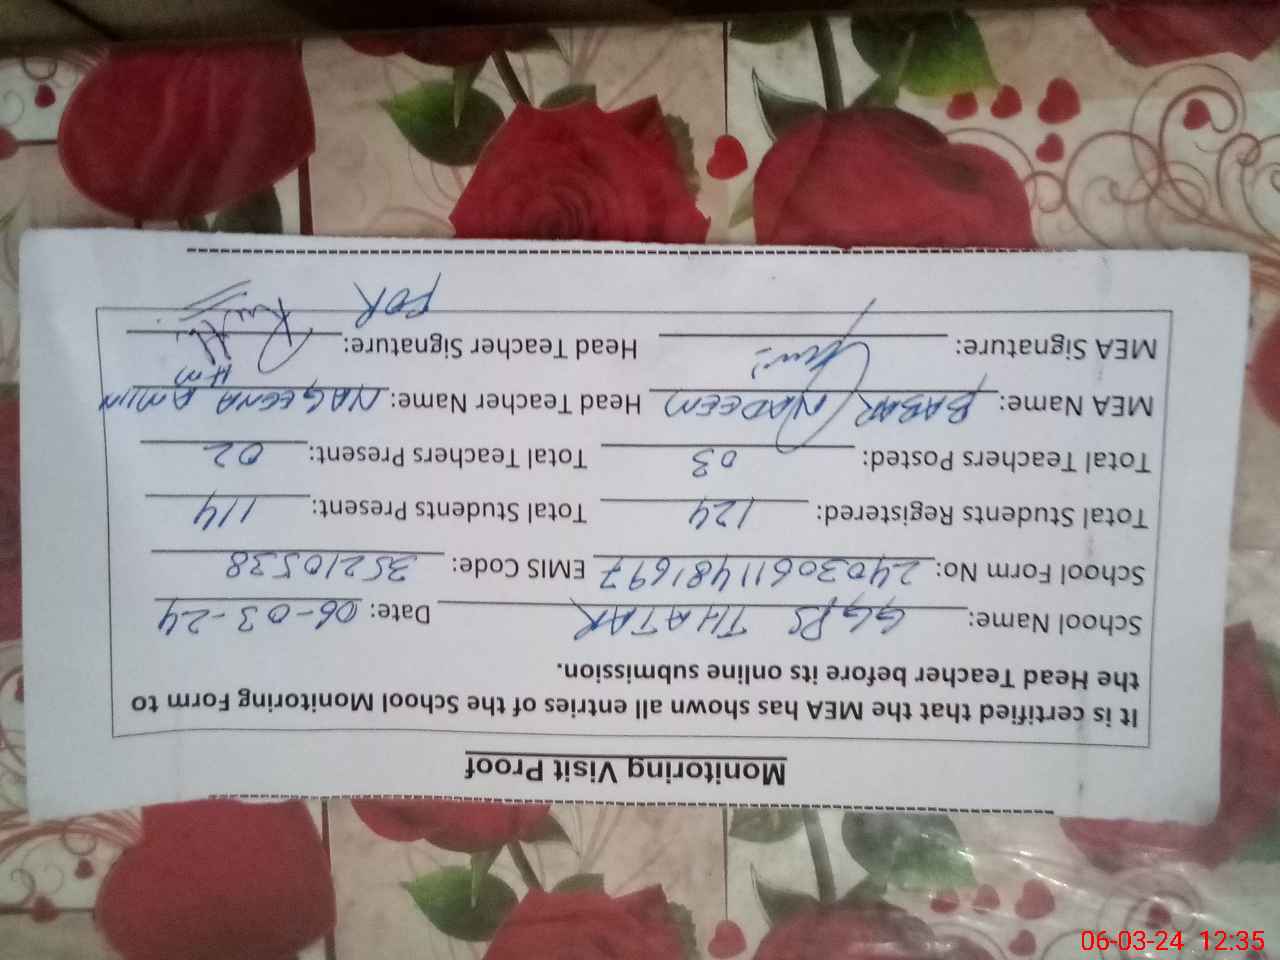 Monitoring Visit Proof
It is certified that the MEA has shown all entries of the School Monitoring Form to
the Head Teacher before its online submission.
School Name: GGPS THATAR Date: 06-03-24
School Form No: 24030611481697 EMIS Code: 35210538
Total Students Registered: 124 Total Students Present: 114
Total Teachers Posted: 03 Total Teachers Present: 02
MEA Name: BABAR NADEEM Head Teacher Name: NAGEENA AMIIN
HM
MEA Signature: Head Teacher Signature:
FOR
06-03-24 12:35